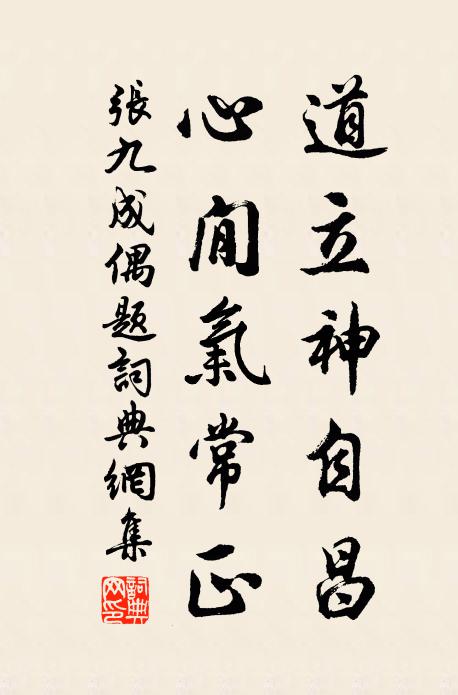 道立神自昌
心閒氣常正
張九成偶題詞典網集
詞典網印